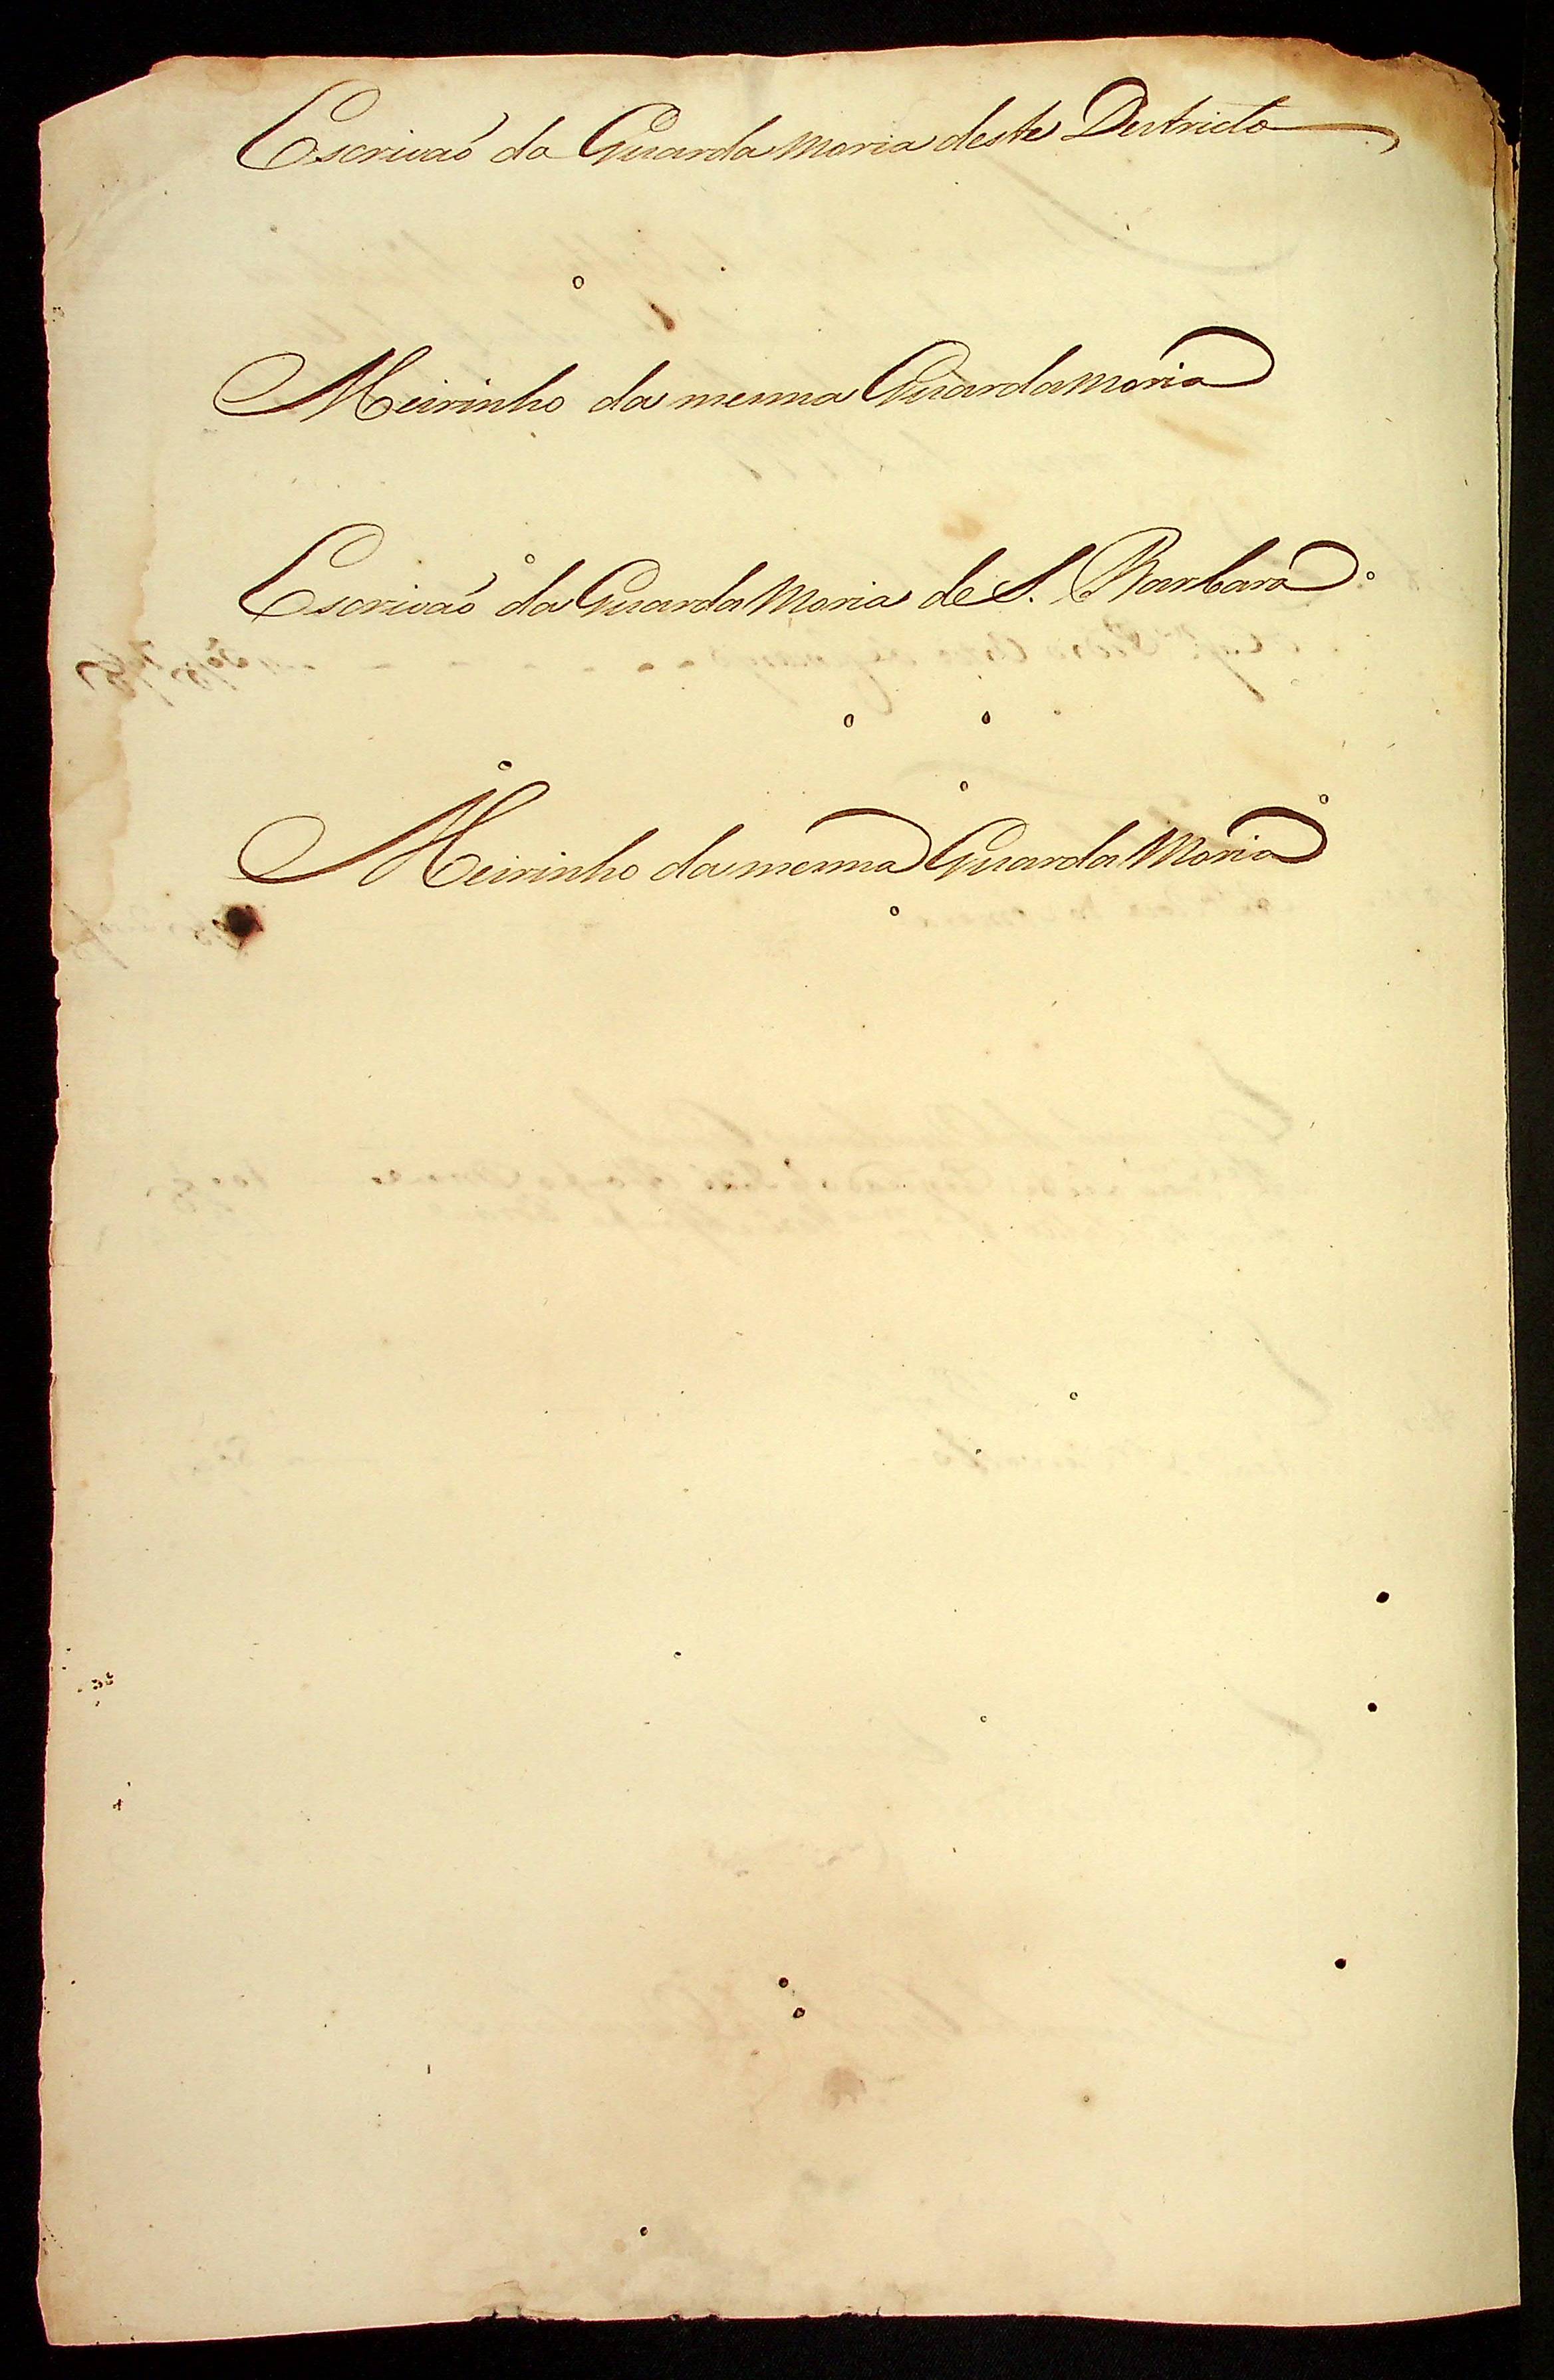 Escrivaõ da Guarda moria deste Destricto
Meirinho da mesma Guardamoria
Escrivaõ da Guarda Moria de S. Barbara
Meirinho da mesma Guarda Moria